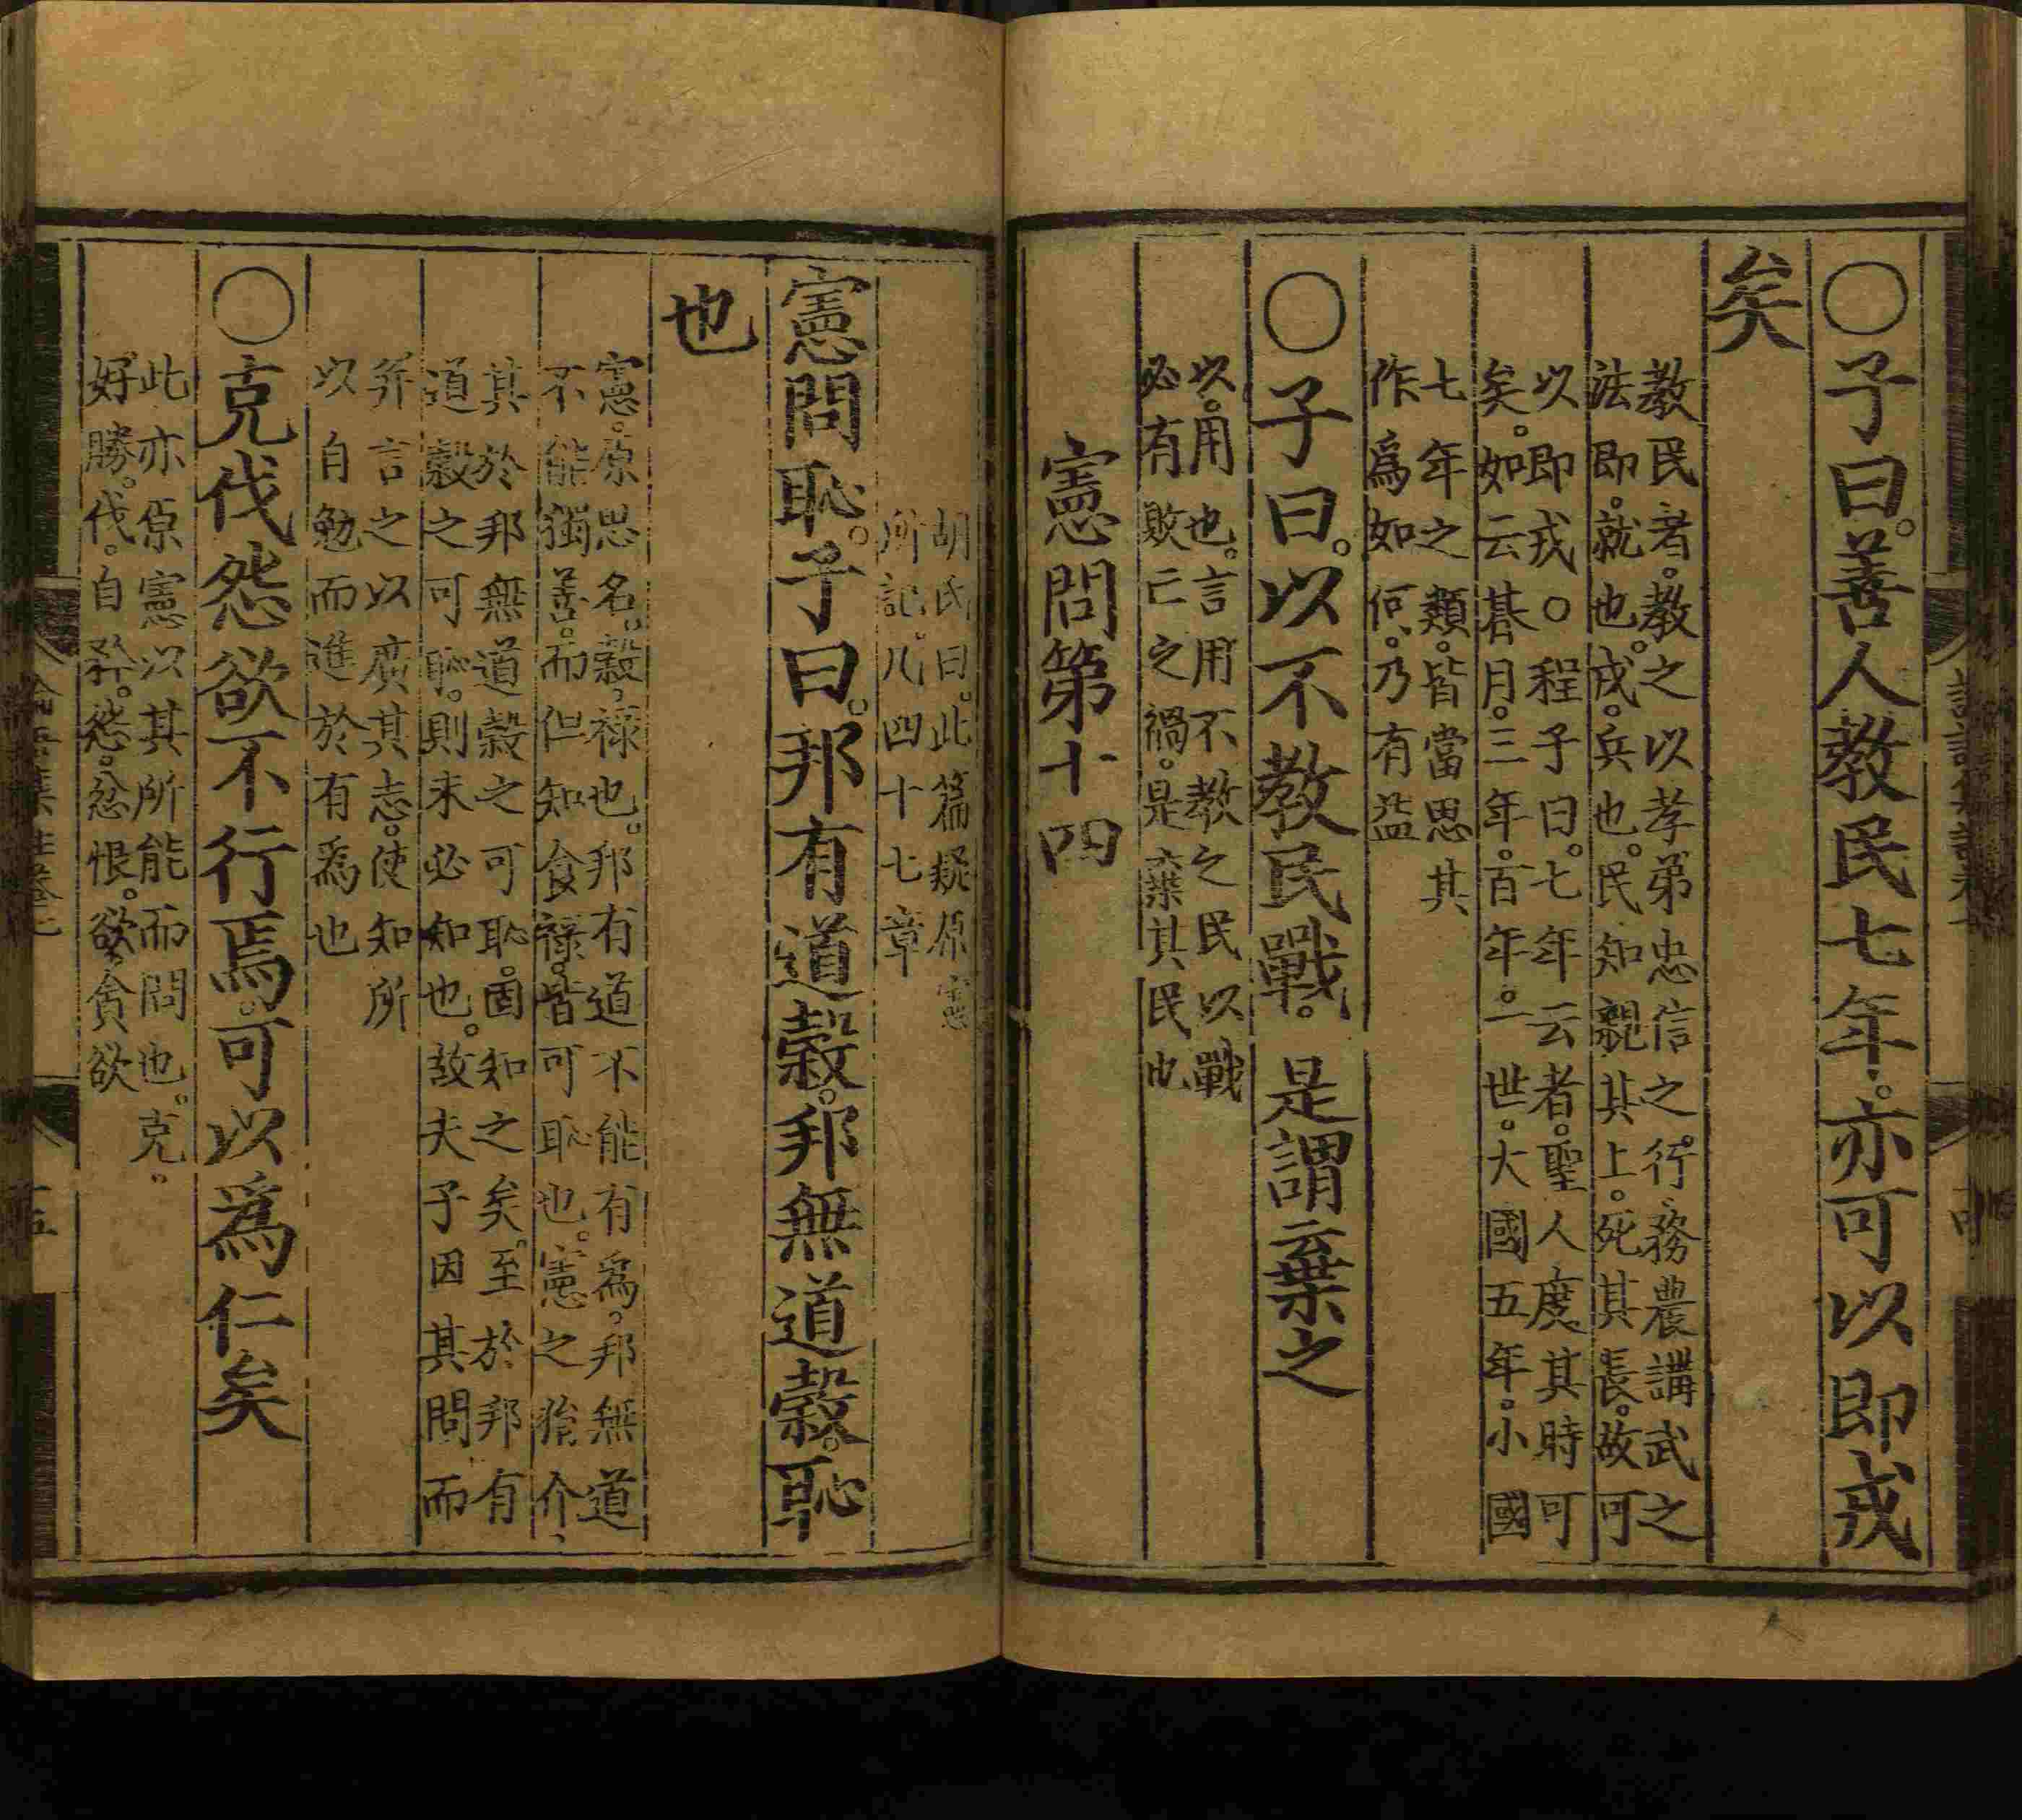 ○子曰。善人教民七年。亦可以即戎
矣
教民者。教之以孝弟忠信之行。務農講武之
法即。就也。戎。兵也。民知親其上。死其長。故可
以即戎○程子曰。七年云者。聖人度其時可
矣。如云朞月。三年。百年。一世。大國五年。小國
七年之類。皆當思其
作爲如何。乃有益
○子曰。以不教民戰。是謂棄之
以。用也。言用不教之民以戰
必有敗亡之禍。是棄其民也
憲問第十四
胡氏曰。此篇疑原憲
所記。凡四十七章
憲問恥。子曰。邦有道穀。邦無道穀。恥
也
憲。原思名。穀。祿也。邦有道不能有爲。邦無道
不能獨善。而但知食祿。皆可恥也。憲之狷介、
其於邦無道穀之可恥。固知之矣。至於邦有
道穀之可恥。則未必知也。故夫子因其問而
并言之以廣其志。使知所
以自勉而進於有爲也
○克伐怨欲不行焉。可以爲仁矣
此亦原憲以其所能而問也。克。
好勝。伐。自矜。怨。忿恨。欲。貪欲